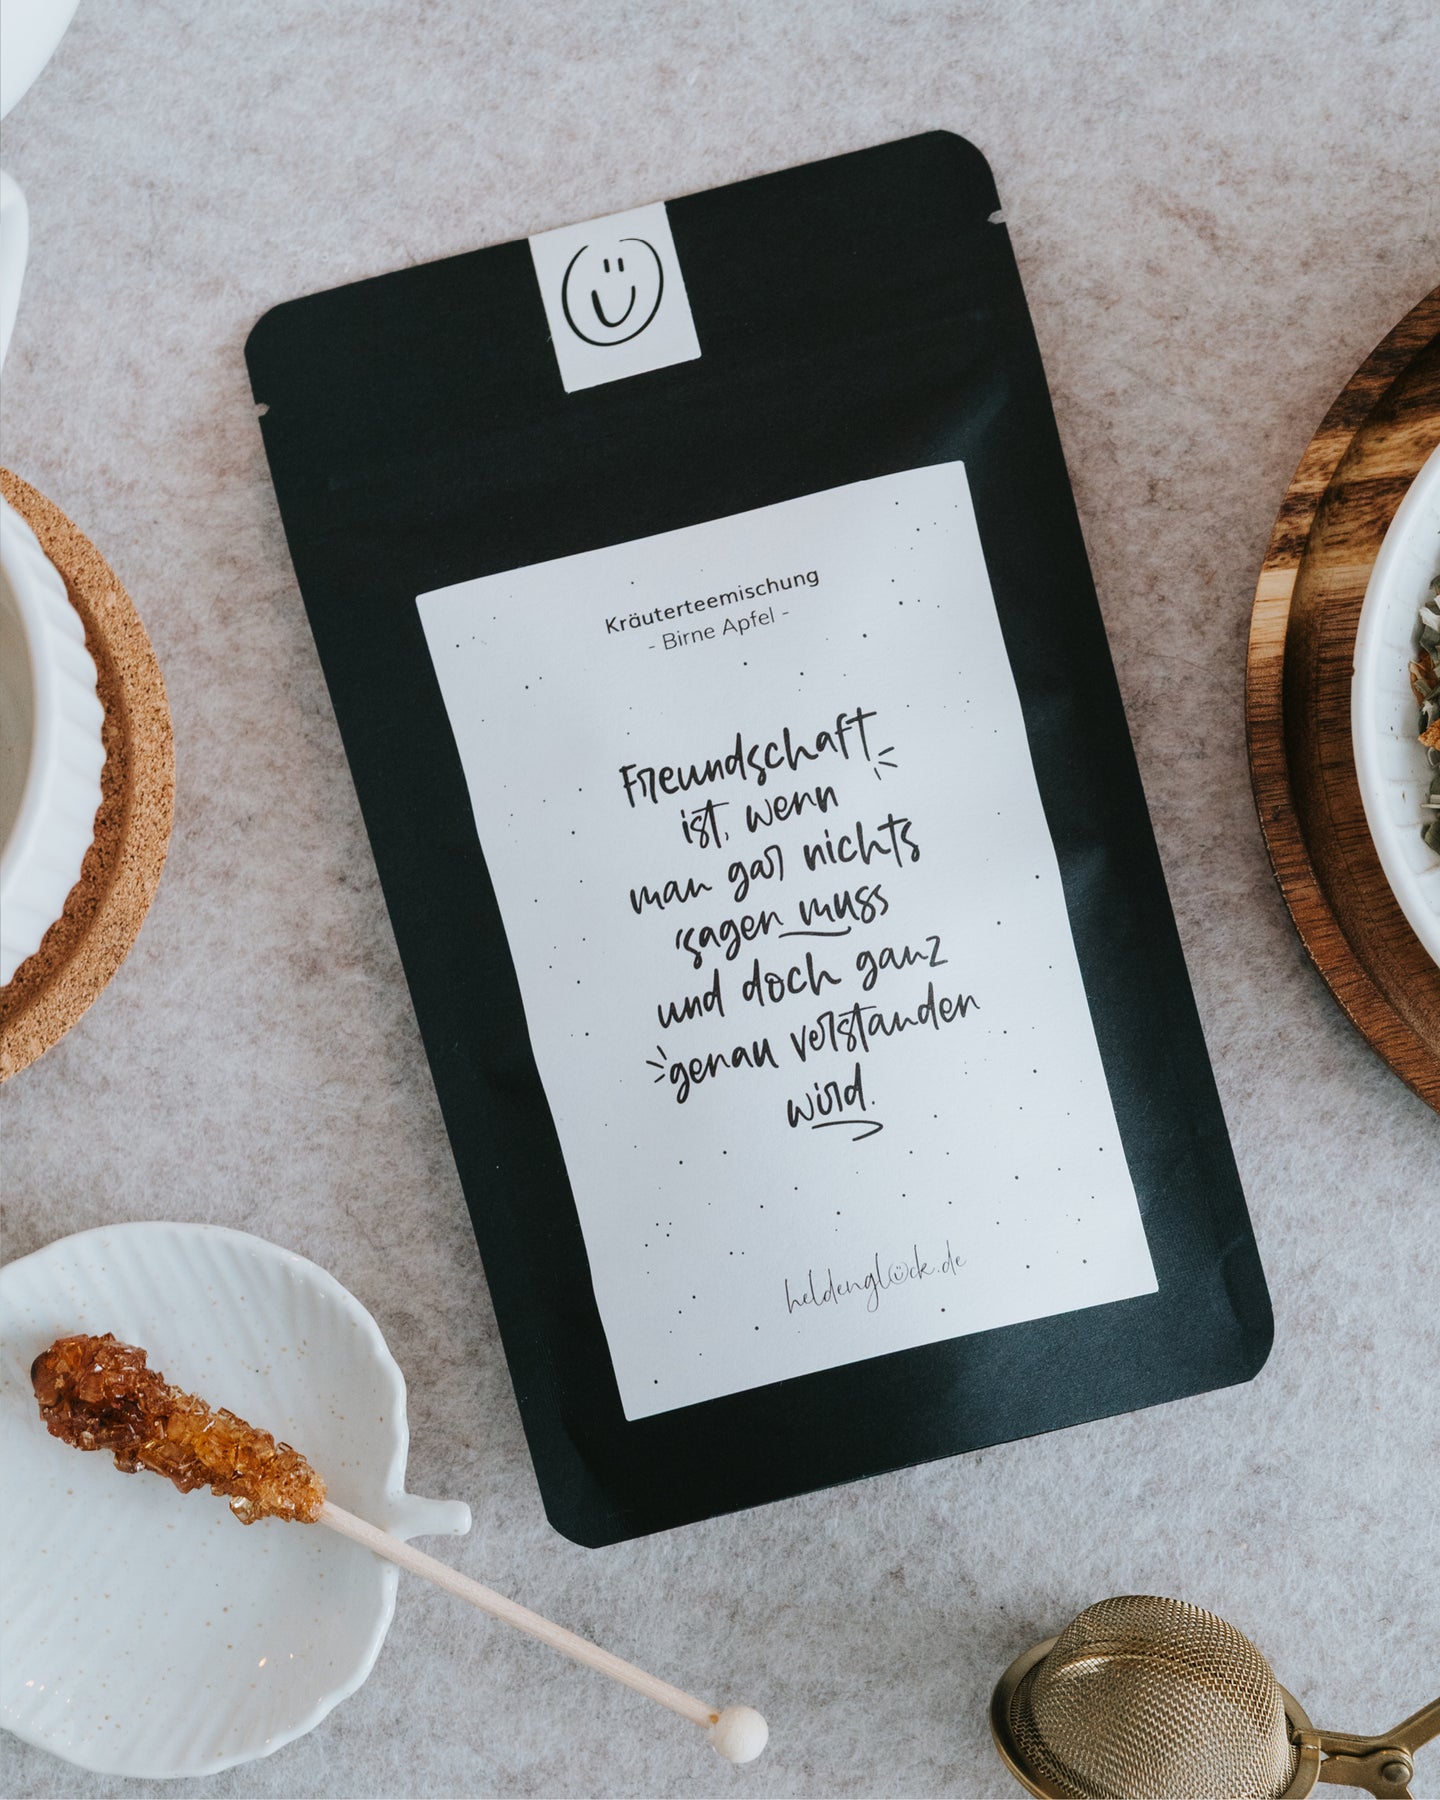 Kräuterteemischung
- Birne Apfel -
Freundschaft
ist, wenn
man gar nichts
sagen muss
und doch ganz
genau verstanden
wird.
heldenglück.de